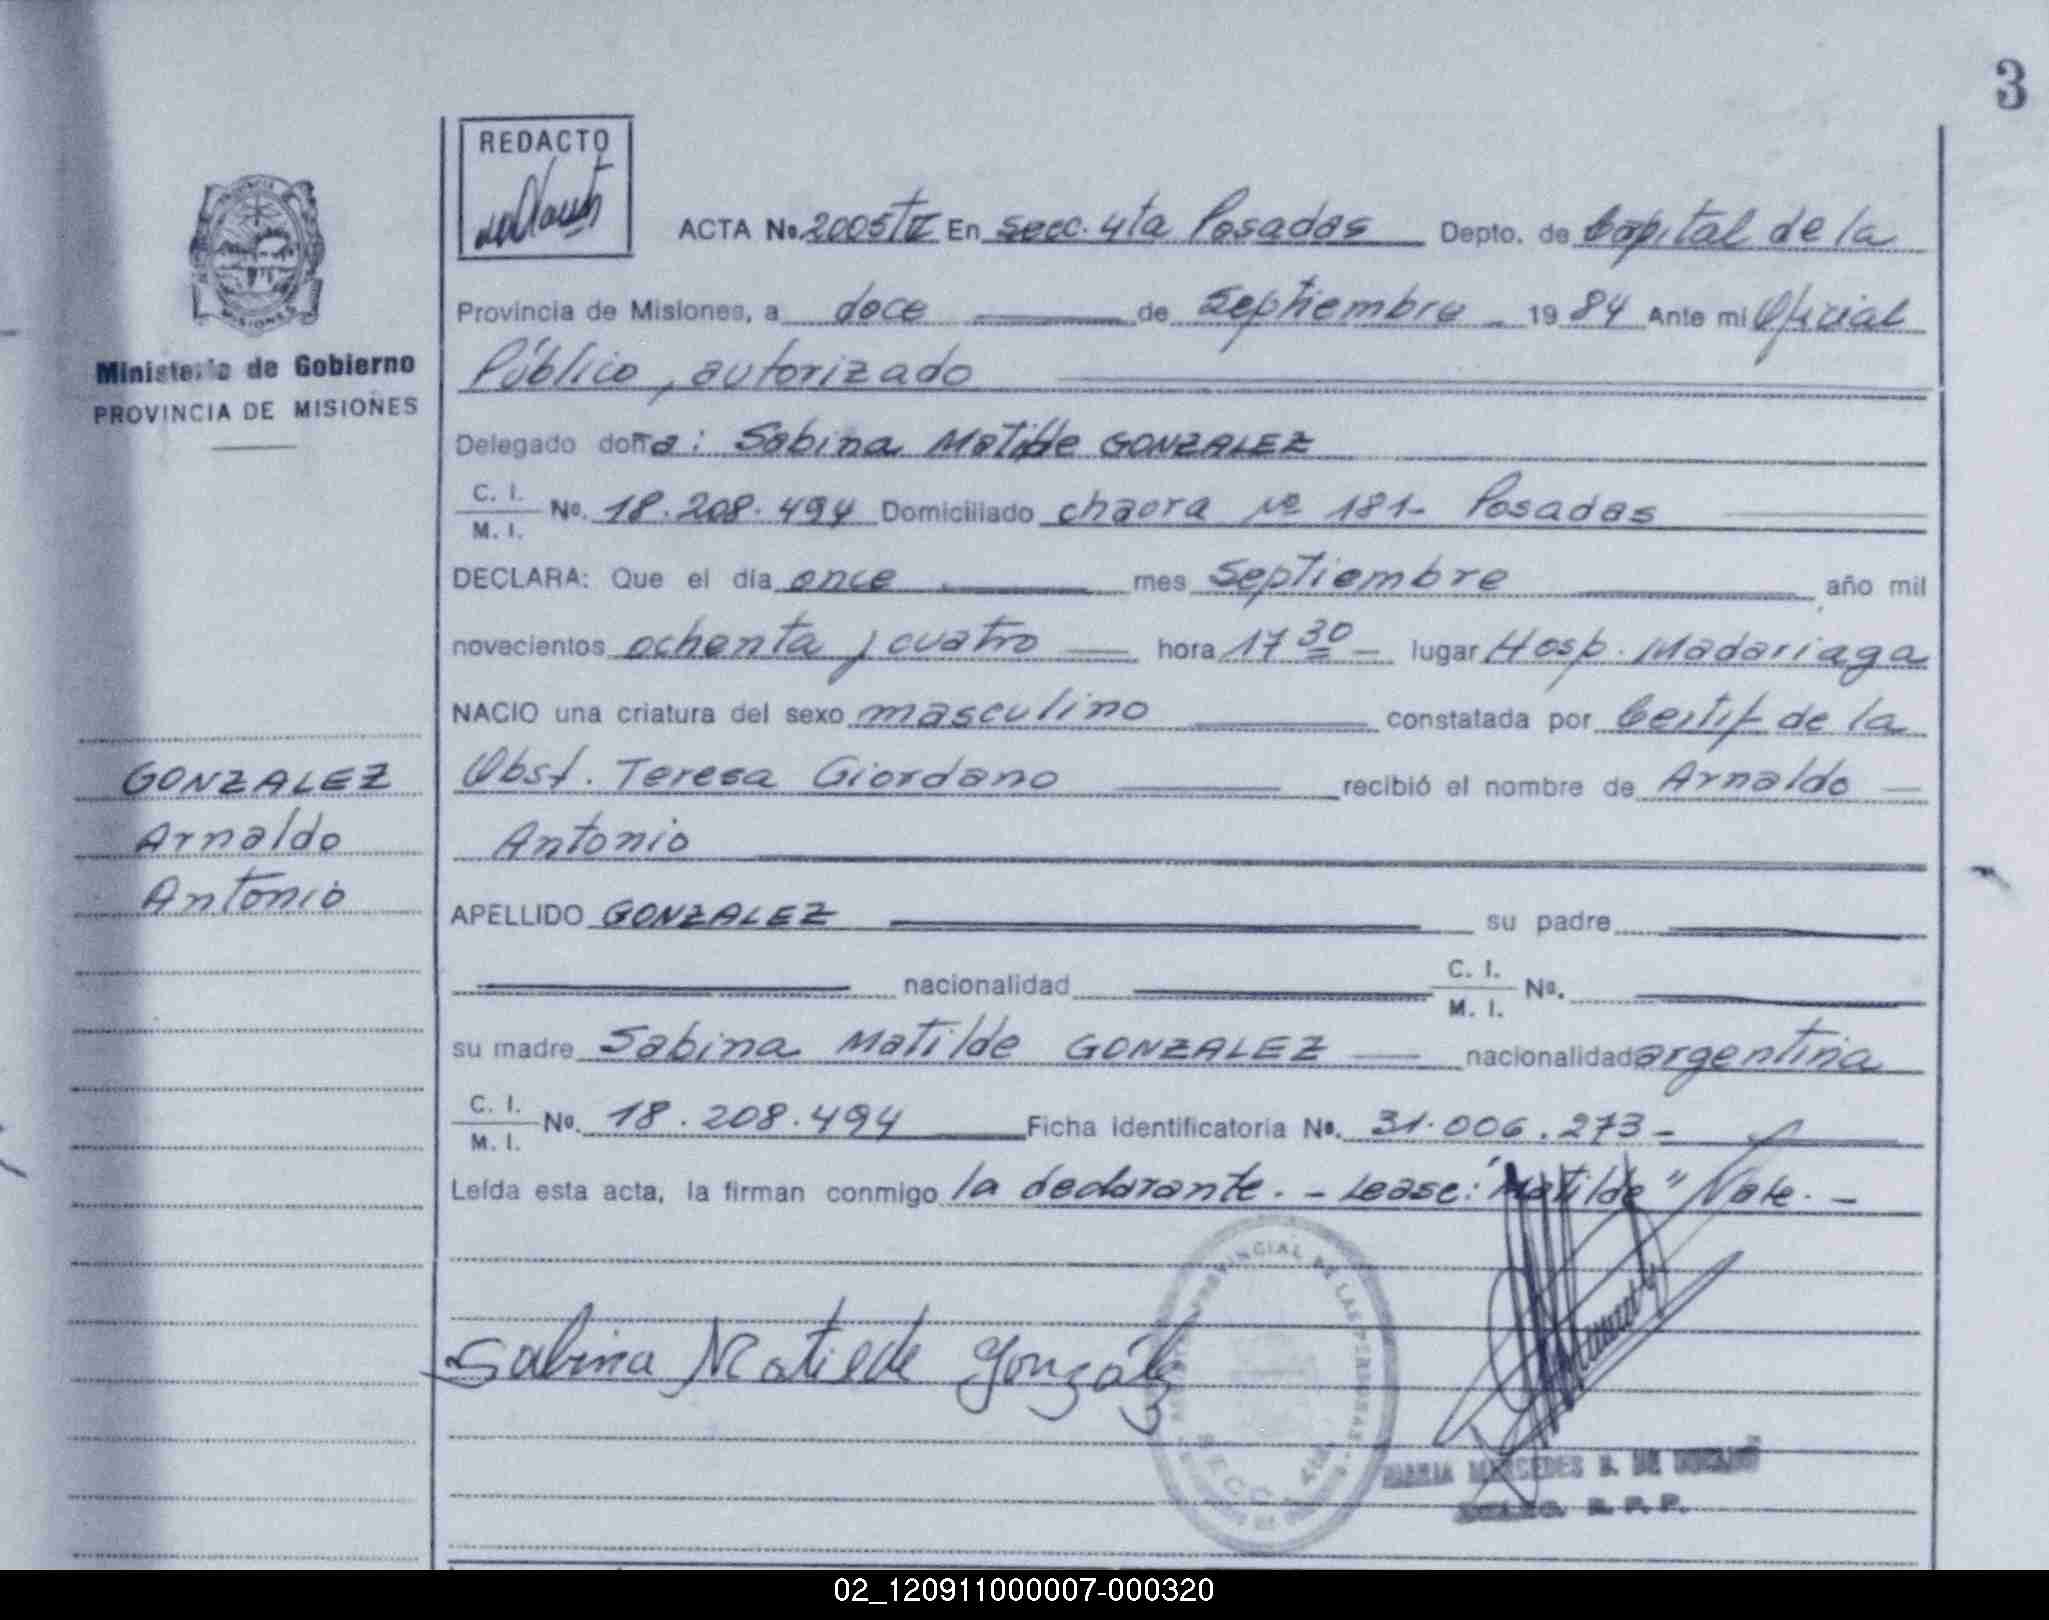 3
REDACTO
ACTA No. 2005 T II En secc. 4ta Posadas Depto. de Capital de la
Provincia de Misiones, a doce de Septiembre 1984 Ante mi Oficial
Público, autorizado
Ministerio de Gobierno
PROVINCIA DE MISIONES
Delegado doña: Sabina Matilde GONZALEZ
C. I.
M. I. No. 18.208.494 Domiciliado chacra Nº 181- Posadas
DECLARA: Que el día once mes Septiembre año mil
novecientos ochenta y cuatro hora 17 30 lugar Hosp. Madariaga
NACIO una criatura del sexo masculino constatada por Certif. de la
Obst. Teresa Giordano recibió el nombre de Arnaldo
Antonio
GONZALEZ
Arnaldo
Antonio
APELLIDO GONZALEZ su padre
nacionalidad C. I.
M. I. No.
su madre Sabina Matilde GONZALEZ nacionalidad argentina
C. I.
M. I. No. 18.208.494 Ficha identificatoria No. 31.006.273-
Leída esta acta, la firman conmigo la declarante. - Lease: "Matilde" Vale. -
Sabina Matilde González
PROVINCIAL DE LAS PERSONAS
SECC. 4ta
MARIA MERCEDES
R. P. P.
02_120911000007-000320